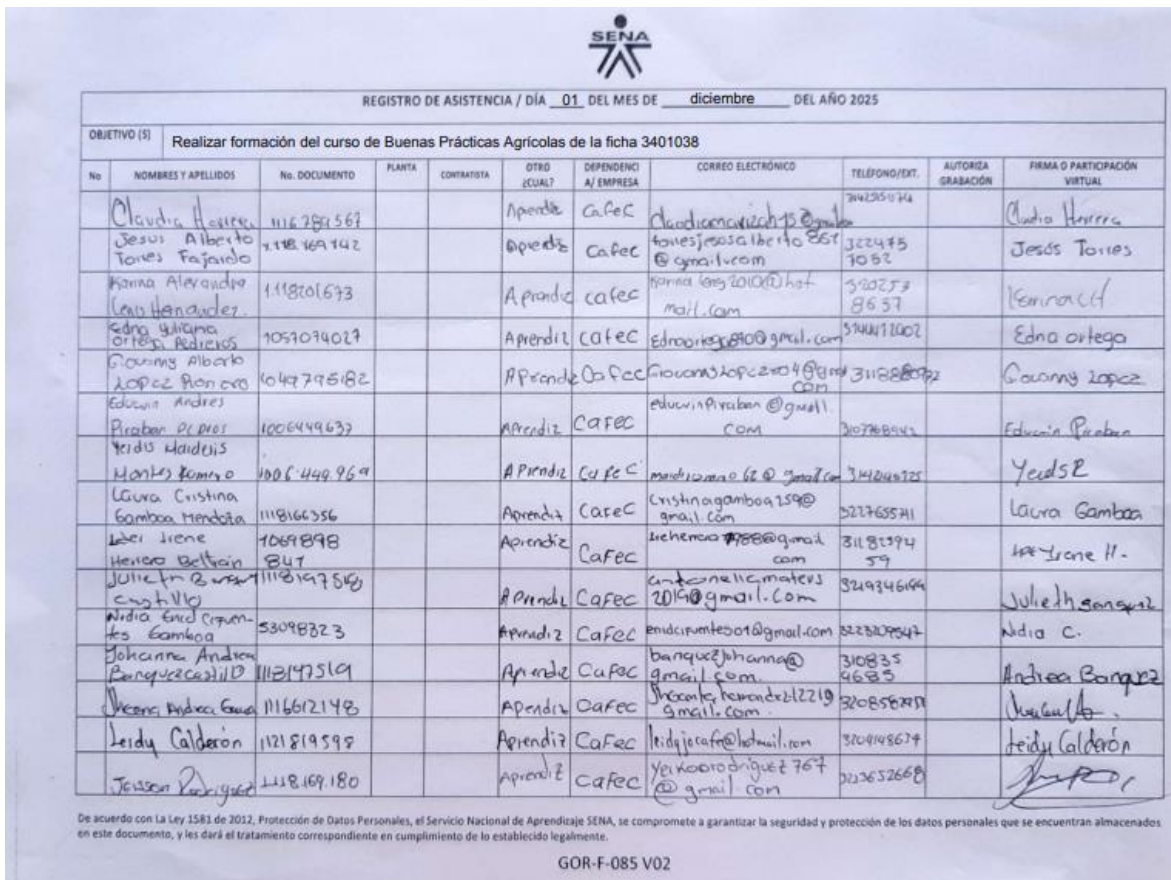 SENA
REGISTRO DE ASISTENCIA / DÍA 01 DEL MES DE diciembre DEL AÑO 2025
OBJETIVO (S) Realizar formación del curso de Buenas Prácticas Agrícolas de la ficha 3401038
No NOMBRES Y APELLIDOS No. DOCUMENTO PLANTA CONTRATISTA OTRO ¿CUAL? DEPENDENCIA/ EMPRESA CORREO ELECTRÓNICO TELÉFONO/EXT. AUTORIZA GRABACIÓN FIRMA O PARTICIPACIÓN VIRTUAL
Claudia Herrera 1116789567 Aprendiz Cafec Claudia Herrera
Jesus Alberto Torres Fajardo 1.118.169.142 Aprendiz Cafec torresjesusalberto861@gmail.com 322475 7052 Jesús Torres
Karina Alexandra Lens Hernandez. 1.118201673 Aprendiz cafec 320253 8637
Edna Yuliana Ortega Pedreros 1057074027 Aprendiz cafec Ednaortega890@gmail.com Edna ortega
Giovanny Alberto Lopez 1049795182 Aprendiz Cafec Giovanny Lopez
Educvin Andres Piraban 1006449637 Aprendiz Cafec educvinpiraban@gmail.com 3107768942 Educvin Piraban
Yeidis Maidelis Montes Romero 1006.449.969 Aprendiz Cafec
Laura Cristina Gamboa Mendoza 1118166356 Aprendiz Cafec Cristinagamboa259@gmail.com Laura Gamboa
Irene Herrera Beltrán 1069898 847 Aprendiz Cafec 31182394 59 Irene H.
Julieth castillo 1118197518 Aprendiz Cafec 2019@gmail.com 3219346199 Julieth
Nidia Enid Cifuentes Gamboa 53098323 Aprendiz Cafec enidcifuentes01@gmail.com 3223209547 Nidia C.
Johanna Andrea Banquez castillo 1118197519 Aprendiz Cafec banquezjohanna@gmail.com. 310835 4685 Andrea Banquez
Andrea 1116612148 Aprendiz Cafec
Leidy Calderón 1121819598 Aprendiz Cafec leidyjocafe@hotmail.com 3204148634 Leidy Calderón
Jeisson Rodriguez 1.118.169.180 Aprendiz Cafec yeikoorodriguez767@gmail.com 3213652668
De acuerdo con La Ley 1581 de 2012, Protección de Datos Personales, el Servicio Nacional de Aprendizaje SENA, se compromete a garantizar la seguridad y protección de los datos personales que se encuentran almacenados
en este documento, y les dará el tratamiento correspondiente en cumplimiento de lo establecido legalmente.
GOR-F-085 V02